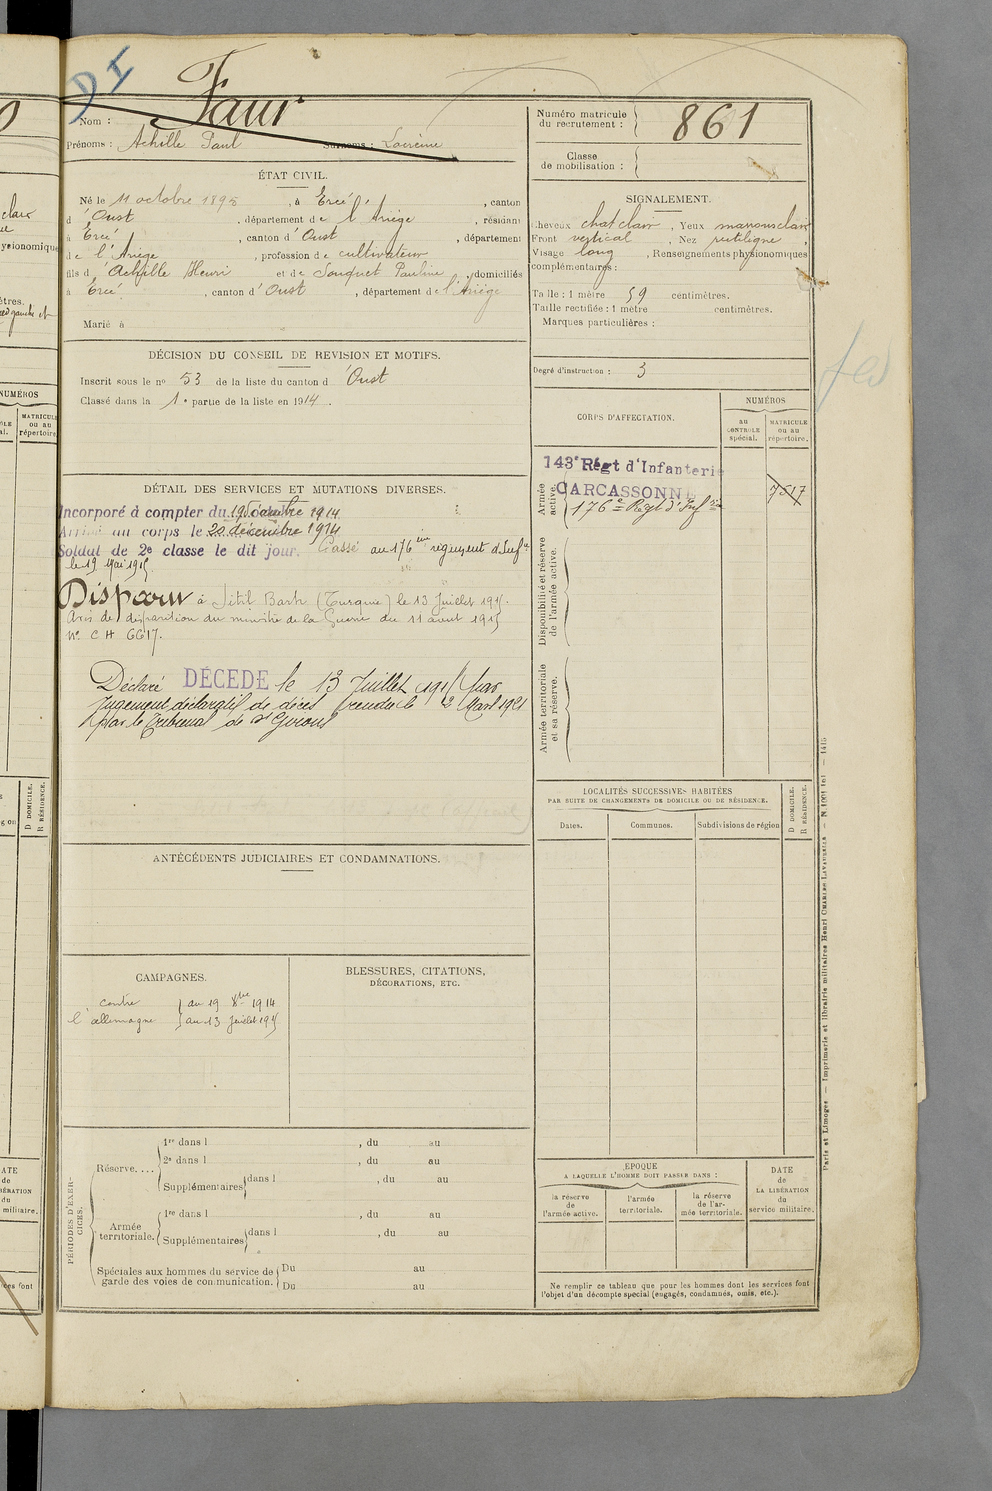 DI
Faur
Nom :
Prénoms : Achille Paul Surnoms :
Numéro matricule du recrutement : 861
Classe de mobilisation :
ÉTAT CIVIL.
Né le 11 octobre 189 , à Ercé , canton
d'Oust , département de l'Ariège , résidant
à Ercé , canton d'Oust , département
de l'Ariège , profession de cultivateur
fils d'Achille Henri et de Souquet Pauline , domiciliés
à Ercé , canton d'Oust , département de l'Ariège
Marié à
SIGNALEMENT.
Cheveux chat clair , Yeux marrons clair
Front vertical , Nez rectiligne ,
Visage long , Renseignements physionomiques
complémentaires :
Taille : 1 mètre 59 centimètres.
Taille rectifiée : 1 mètre centimètres.
Marques particulières :
Degré d'instruction : 3
DÉCISION DU CONSEIL DE REVISION ET MOTIFS.
Inscrit sous le nº 53 de la liste du canton d'Oust
Classé dans la 1e partie de la liste en 1914 .
CORPS D'AFFECTATION.
NUMÉROS
au CONTRÔLE spécial.
MATRICULE ou au répertoire.
Armée active.
143e Régt d'Infanterie
CARCASSONNE
176e Régt d'Infie
7517
Disponibilité et réserve de l'armée active.
Armée territoriale et sa réserve.
DÉTAIL DES SERVICES ET MUTATIONS DIVERSES.
Incorporé à compter du 19 octobre 1914
Arrivé au corps le 20 décembre 1914
Soldat de 2e classe le dit jour. Passé au 176ème régiment d'Infie
le 19 Mai 1915
Disparu à Sitil Barh (Turquie) le 13 Juillet 1915.
Avis de disparition du ministre de la Guerre du 11 août 1915
Nº CH 6617.
Déclaré DÉCÉDÉ le 13 Juillet 1915 par
Jugement déclaratif de décès rendu le 2 Mars 1921
par le Tribunal de St Girons
LOCALITÉS SUCCESSIVES HABITÉES
PAR SUITE DE CHANGEMENTS DE DOMICILE OU DE RÉSIDENCE.
Dates.
Communes.
Subdivisions de région
D DOMICILE.
R RÉSIDENCE.
ANTÉCÉDENTS JUDICIAIRES ET CONDAMNATIONS.
CAMPAGNES.
contre du 19 8bre 1914
l'allemagne au 13 Juillet 1915
BLESSURES, CITATIONS,
DÉCORATIONS, ETC.
PÉRIODES D'EXERCICES.
Réserve....
1re dans l , du au
2e dans l , du au
Supplémentaires dans l , du au
Armée territoriale.
1re dans l , du au
Supplémentaires dans l , du au
Spéciales aux hommes du service de garde des voies de communication.
Du au
Du au
ÉPOQUE
A LAQUELLE L'HOMME DOIT PASSER DANS :
la réserve de l'armée active.
l'armée territoriale.
la réserve de l'armée territoriale.
DATE de LA LIBÉRATION du service militaire.
Ne remplir ce tableau que pour les hommes dont les services font
l'objet d'un décompte spécial (engagés, condamnés, omis, etc.).
Paris et Limoges. — Imprimerie et librairie militaires Henri CHARLES-LAVAUZELLE